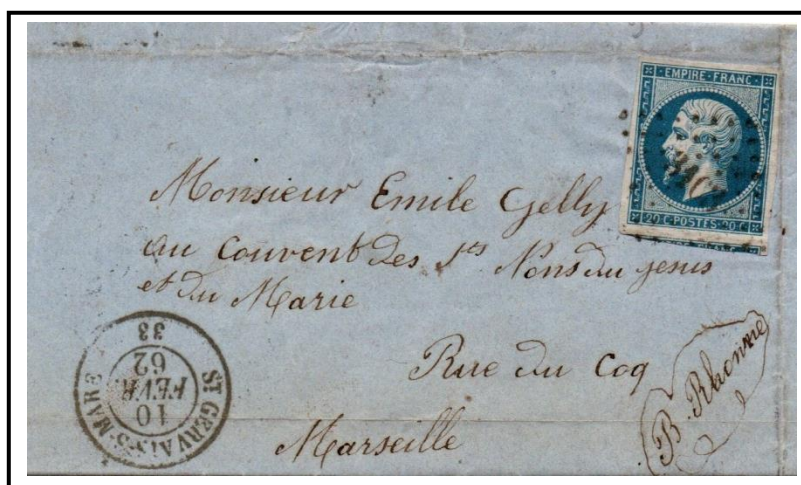 EMPIRE·FRANC·
20 C·POSTES·20 C
Monsieur Emile Gelly
au Couvent des Sts Noms du jesus
et du Marie
Rue du Coq
Marseille
B. Rhonne
ST GERVAIS-S-MARE
10
FEVR.
62
33